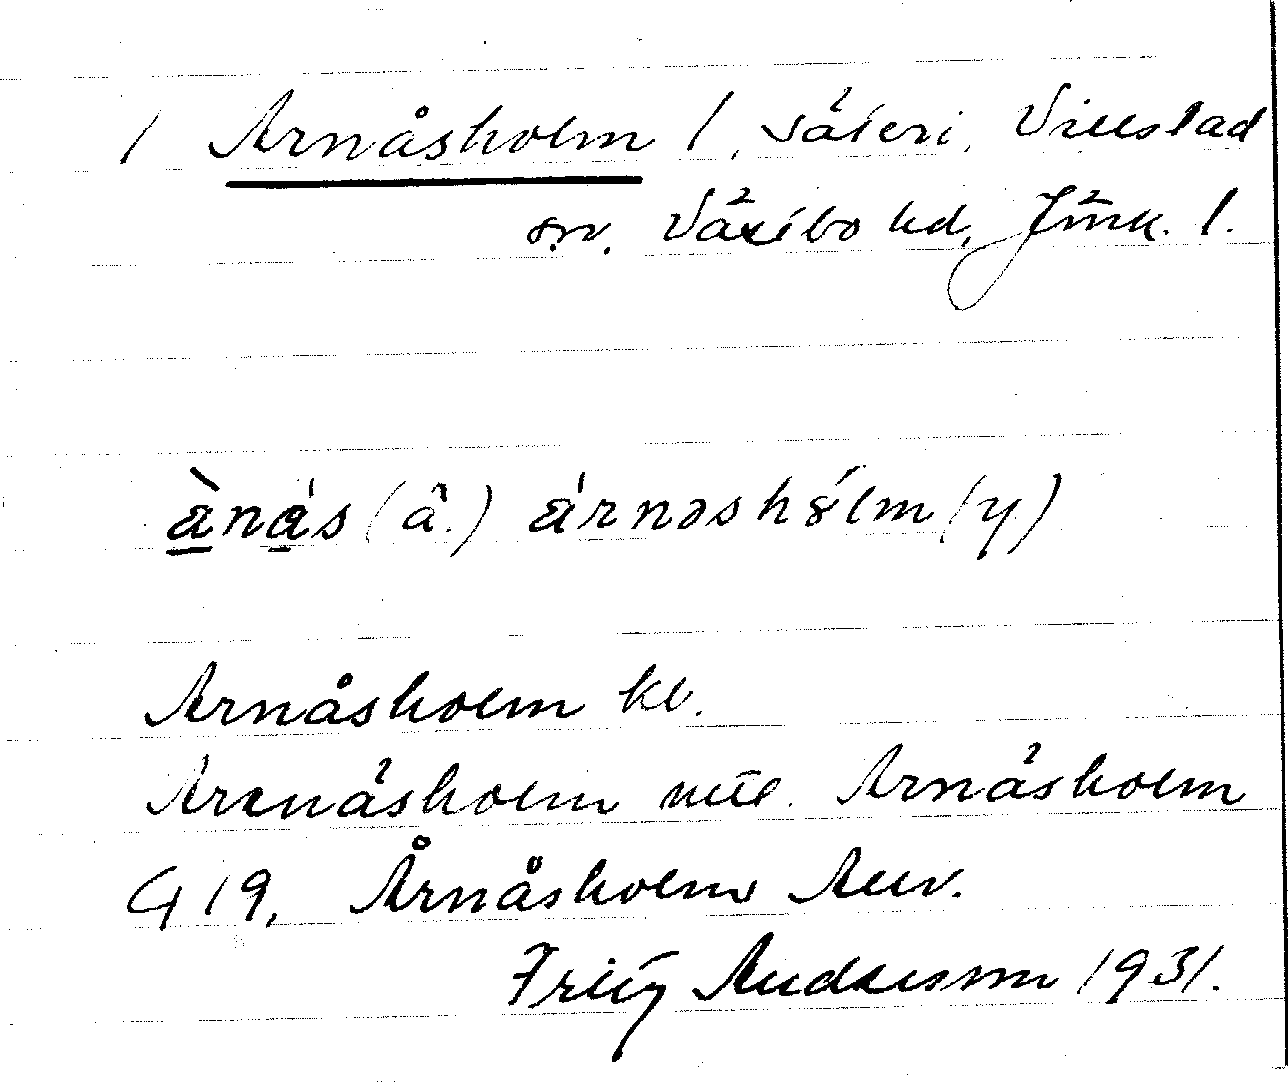 1 Arnåsholm 1, säteri, Villstad
sn. Västbo hd, Jönk. l.
ànás (å.) árnəshólm (y)
Arnåsholm kb.
Arnåsholm utt. Arnåsholm
G 19, Årnåsholm Anv.
Fritz Andersson 1931.